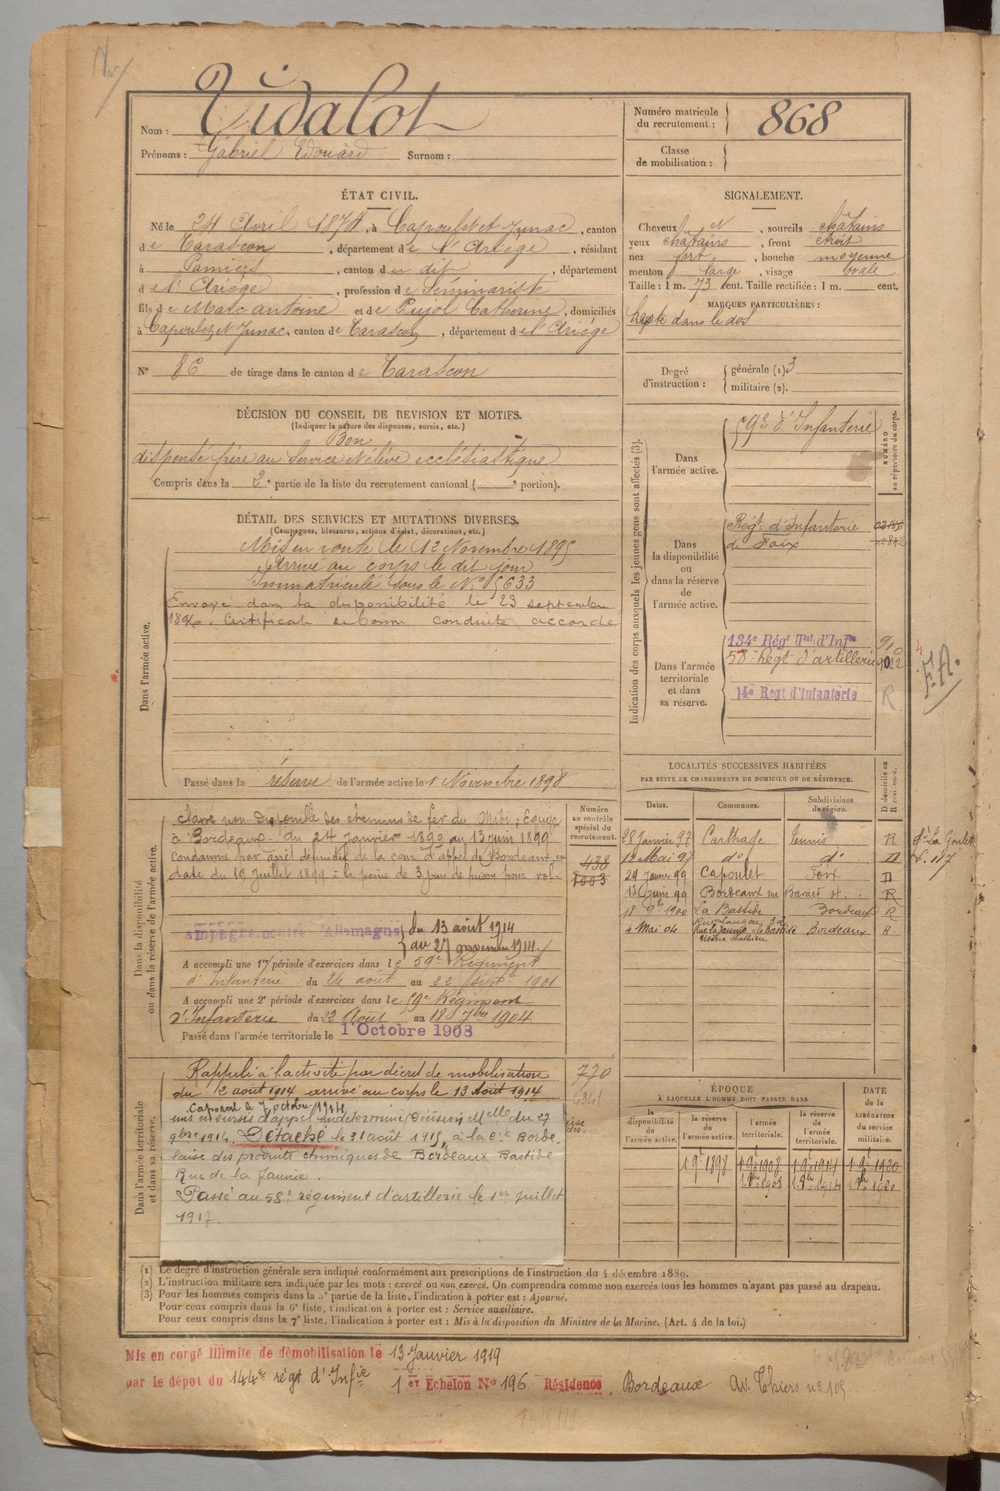 Nom : Vidalot
Prénoms : Gabriel Edouard Surnom :
Numéro matricule du recrutement : 868
Classe de mobilisation :
ÉTAT CIVIL.
Né le 24 Avril 1874, à Capoulet et Junac, canton
de Tarascon, département de l'Ariège, résidant
à Pamiers, canton du dit, département
de l'Ariège, profession de Séminariste
fils de Marc antoine et de Pujol Catherine, domiciliés
à Capoulet et Junac, canton de Tarascon, département de l'Ariège
N° 86 de tirage dans le canton de Tarascon
SIGNALEMENT.
Cheveux et, sourcils châtains
yeux châtains, front étroit
nez fort, bouche moyenne
menton large, visage ovale
Taille : 1 m. 73 cent. Taille rectifiée : 1 m. cent.
MARQUES PARTICULIÈRES :
dans le dos
Degré d'instruction : générale (1) 3
militaire (2).
DÉCISION DU CONSEIL DE REVISION ET MOTIFS.
(Indiquer la nature des dispenses, sursis, etc.)
Bon
dispensé frère au service élève ecclésiastique
Compris dans la 2e partie de la liste du recrutement cantonal ( portion).
DÉTAIL DES SERVICES ET MUTATIONS DIVERSES.
(Campagnes, blessures, actions d'éclat, décorations, etc.)
Dans l'armée active.
Mis en route le 12 Novembre 1895
Arrivé au corps le dit jour
Immatriculé sous le N° 5633
Envoyé dans la disponibilité le 23 septembre
1896. Certificat de bonne conduite accordé
Passé dans la réserve de l'armée active le 1 Novembre 1898
Indication des corps auxquels les jeunes gens sont affectés (3).
NUMÉRO au répertoire du corps.
Dans l'armée active.
59e d'Infanterie
Dans la disponibilité ou dans la réserve de l'armée active.
Régt d'Infanterie
de Foix
Dans l'armée territoriale et dans sa réserve.
134e Régt Tal d'Infie
58e Régt d'artillerie
14e Regt d'Infanterie
R
F.A.
Dans la disponibilité ou dans la réserve de l'armée active.
Numéro au contrôle spécial du recrutement.
438
1003
Classé non disponible des chemins de fer du Midi, Equipe
à Bordeaux du 24 Janvier 1899 au 13 juin 1899
Condamné par arrêt définitif de la cour d'appel de Bordeaux, en
date du 19 Juillet 1899 à la peine de 3 jours de prison pour vol
ampagne contre Allemagne du 13 août 1914
au 27 novembre 1914
A accompli une 1re période d'exercices dans le 59e Régiment
d'Infanterie du 26 août au 22 Sept 1901
A accompli une 2e période d'exercices dans le 59e Régiment
d'Infanterie du 22 Août au 18 7bre 1904
Passé dans l'armée territoriale le 1 Octobre 1908
LOCALITÉS SUCCESSIVES HABITÉES
PAR SUITE DE CHANGEMENTS DE DOMICILE OU DE RÉSIDENCE.
Dates. Communes. Subdivisions de région. D domicile ou R résidence.
28 Janvier 97 Carthage Tunis R La Goulette
12 Mai 97 do do D
24 Janvier 99 Capoulet Foix D
13 Juin 99 Bordeaux R
18 9bre 1900 La Bastide Bordeaux R
4 Mai 04 Bordeaux R
Dans l'armée territoriale et dans sa réserve.
Rappelé à l'activité par décret de mobilisation
du 2 août 1914 arrivé au corps le 13 Août 1914
Caporal le 7 octobre 1914
mis en sursis d'appel indéterminé Décision Mlle du 27
9bre 1914. Détaché le 31 août 1915, à la Cie Borde-
laise des produits chimiques de Bordeaux Bastide
Rue de la Jaunie.
Passé au 58e régiment d'artillerie le 1er juillet
1917.
770
4341
ÉPOQUE
À LAQUELLE L'HOMME DOIT PASSER DANS
la disponibilité de l'armée active.
la réserve de l'armée active.
l'armée territoriale.
la réserve de l'armée territoriale.
DATE de la LIBÉRATION DU service militaire.
1 9bre 1898 1 9bre 1908 1 9bre 1914 1 9bre 1920
(1) Le degré d'instruction générale sera indiqué conformément aux prescriptions de l'instruction du 4 décembre 1889.
(2) L'instruction militaire sera indiquée par les mots : exercé ou non exercé. On comprendra comme non exercés tous les hommes n'ayant pas passé au drapeau.
(3) Pour les hommes compris dans la 5e partie de la liste, l'indication à porter est : Ajourné.
Pour ceux compris dans la 6e liste, l'indication à porter est : Service auxiliaire.
Pour ceux compris dans la 7e liste, l'indication à porter est : Mis à la disposition du Ministre de la Marine. (Art. 4 de la loi.)
Mis en congé illimité de démobilisation le 13 Janvier 1919
par le dépôt du 144e régt d'Infie 1er Echelon N° 196 Résidence Bordeaux Av. Thiers n° 105